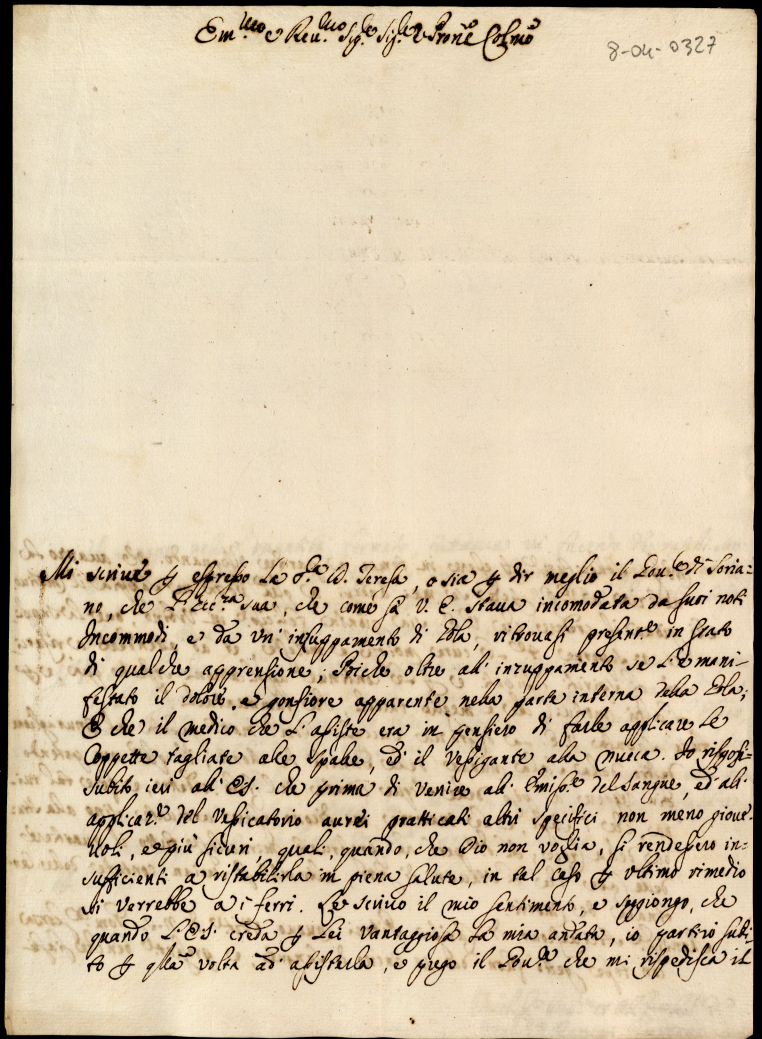 Em.mo e Reu.mo Sig.e Sig.e e Pron̄e Colmo
8-04-0327
Mi scriue p espresso la S.ra D. Teresa, o sia p dir meglio il Gou.re di Soria=
no, che l'Ecc.za sua, che come sà V. E. staua incomodata da suoi noti
Incommodi, e da un' inzuppamento di Gola, ritrouasi presente.e in stato
di qualche apprensione; Poiche oltre all' inzuppamento se l'è mani-
festato il dolore, e gonfiore apparente nella parte interna della Gola;
E che il medico che l'assiste era in pensiero di farle applicare le
Coppette tagliate alle spalle, ed' il Vessigante alla nuca. Io risposi
subito ieri all' E.S. che prima di venire all' Emiss.e del sangue, ed all'
applicaz.e del Vessicatorio aurei pratticati altri specifici non meno gioue-
uoli, e più sicuri, quali, quando, che Dio non voglia, si rendessero in=
sufficienti a ristabilirla in piena salute, in tal caso p ultimo rimedio
si verrebbe a i ferri. Le scriuo il mio sentimento, e soggiongo, che
quando l'E.S. creda p Lei vantaggiosa la mia andata, io partirò subi-
to p q̄lla volta ad' assisterla, e prego il Gou.re che mi rispedisca il